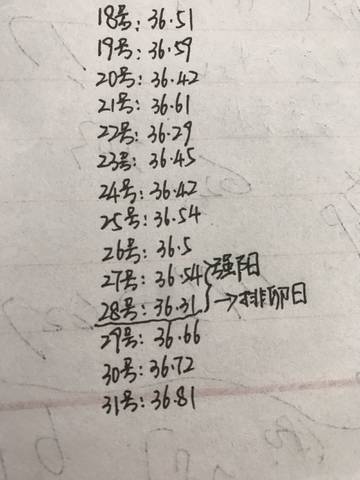 18号: 36.51
19号: 36.59
20号: 36.42
21号: 36.61
22号: 36.29
23号: 36.45
24号: 36.42
25号: 36.54
26号: 36.5
27号: 36.54 强阳
28号: 36.31 →排卵日
29号: 36.66
30号: 36.72
31号: 36.81